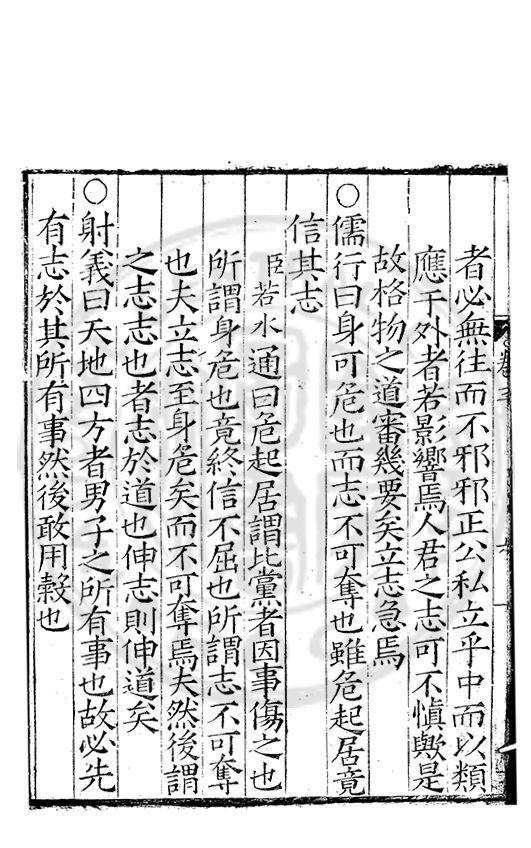 者必無往而不邪邪正公私立乎中而以類
應于外者若影響焉人君之志可不慎歟是
故格物之道審幾要矣立志急焉
○儒行曰身可危也而志不可奪也雖危起居竟
信其志
臣若水通曰危起居謂比黨者因事傷之也
所謂身危也竟終信不屈也所謂志不可奪
也夫立志至身危矣而不可奪焉夫然後謂
之志志也者志於道也伸志則伸道矣
○射義曰天地四方者男子之所有事也故必先
有志於其所有事然後敢用穀也